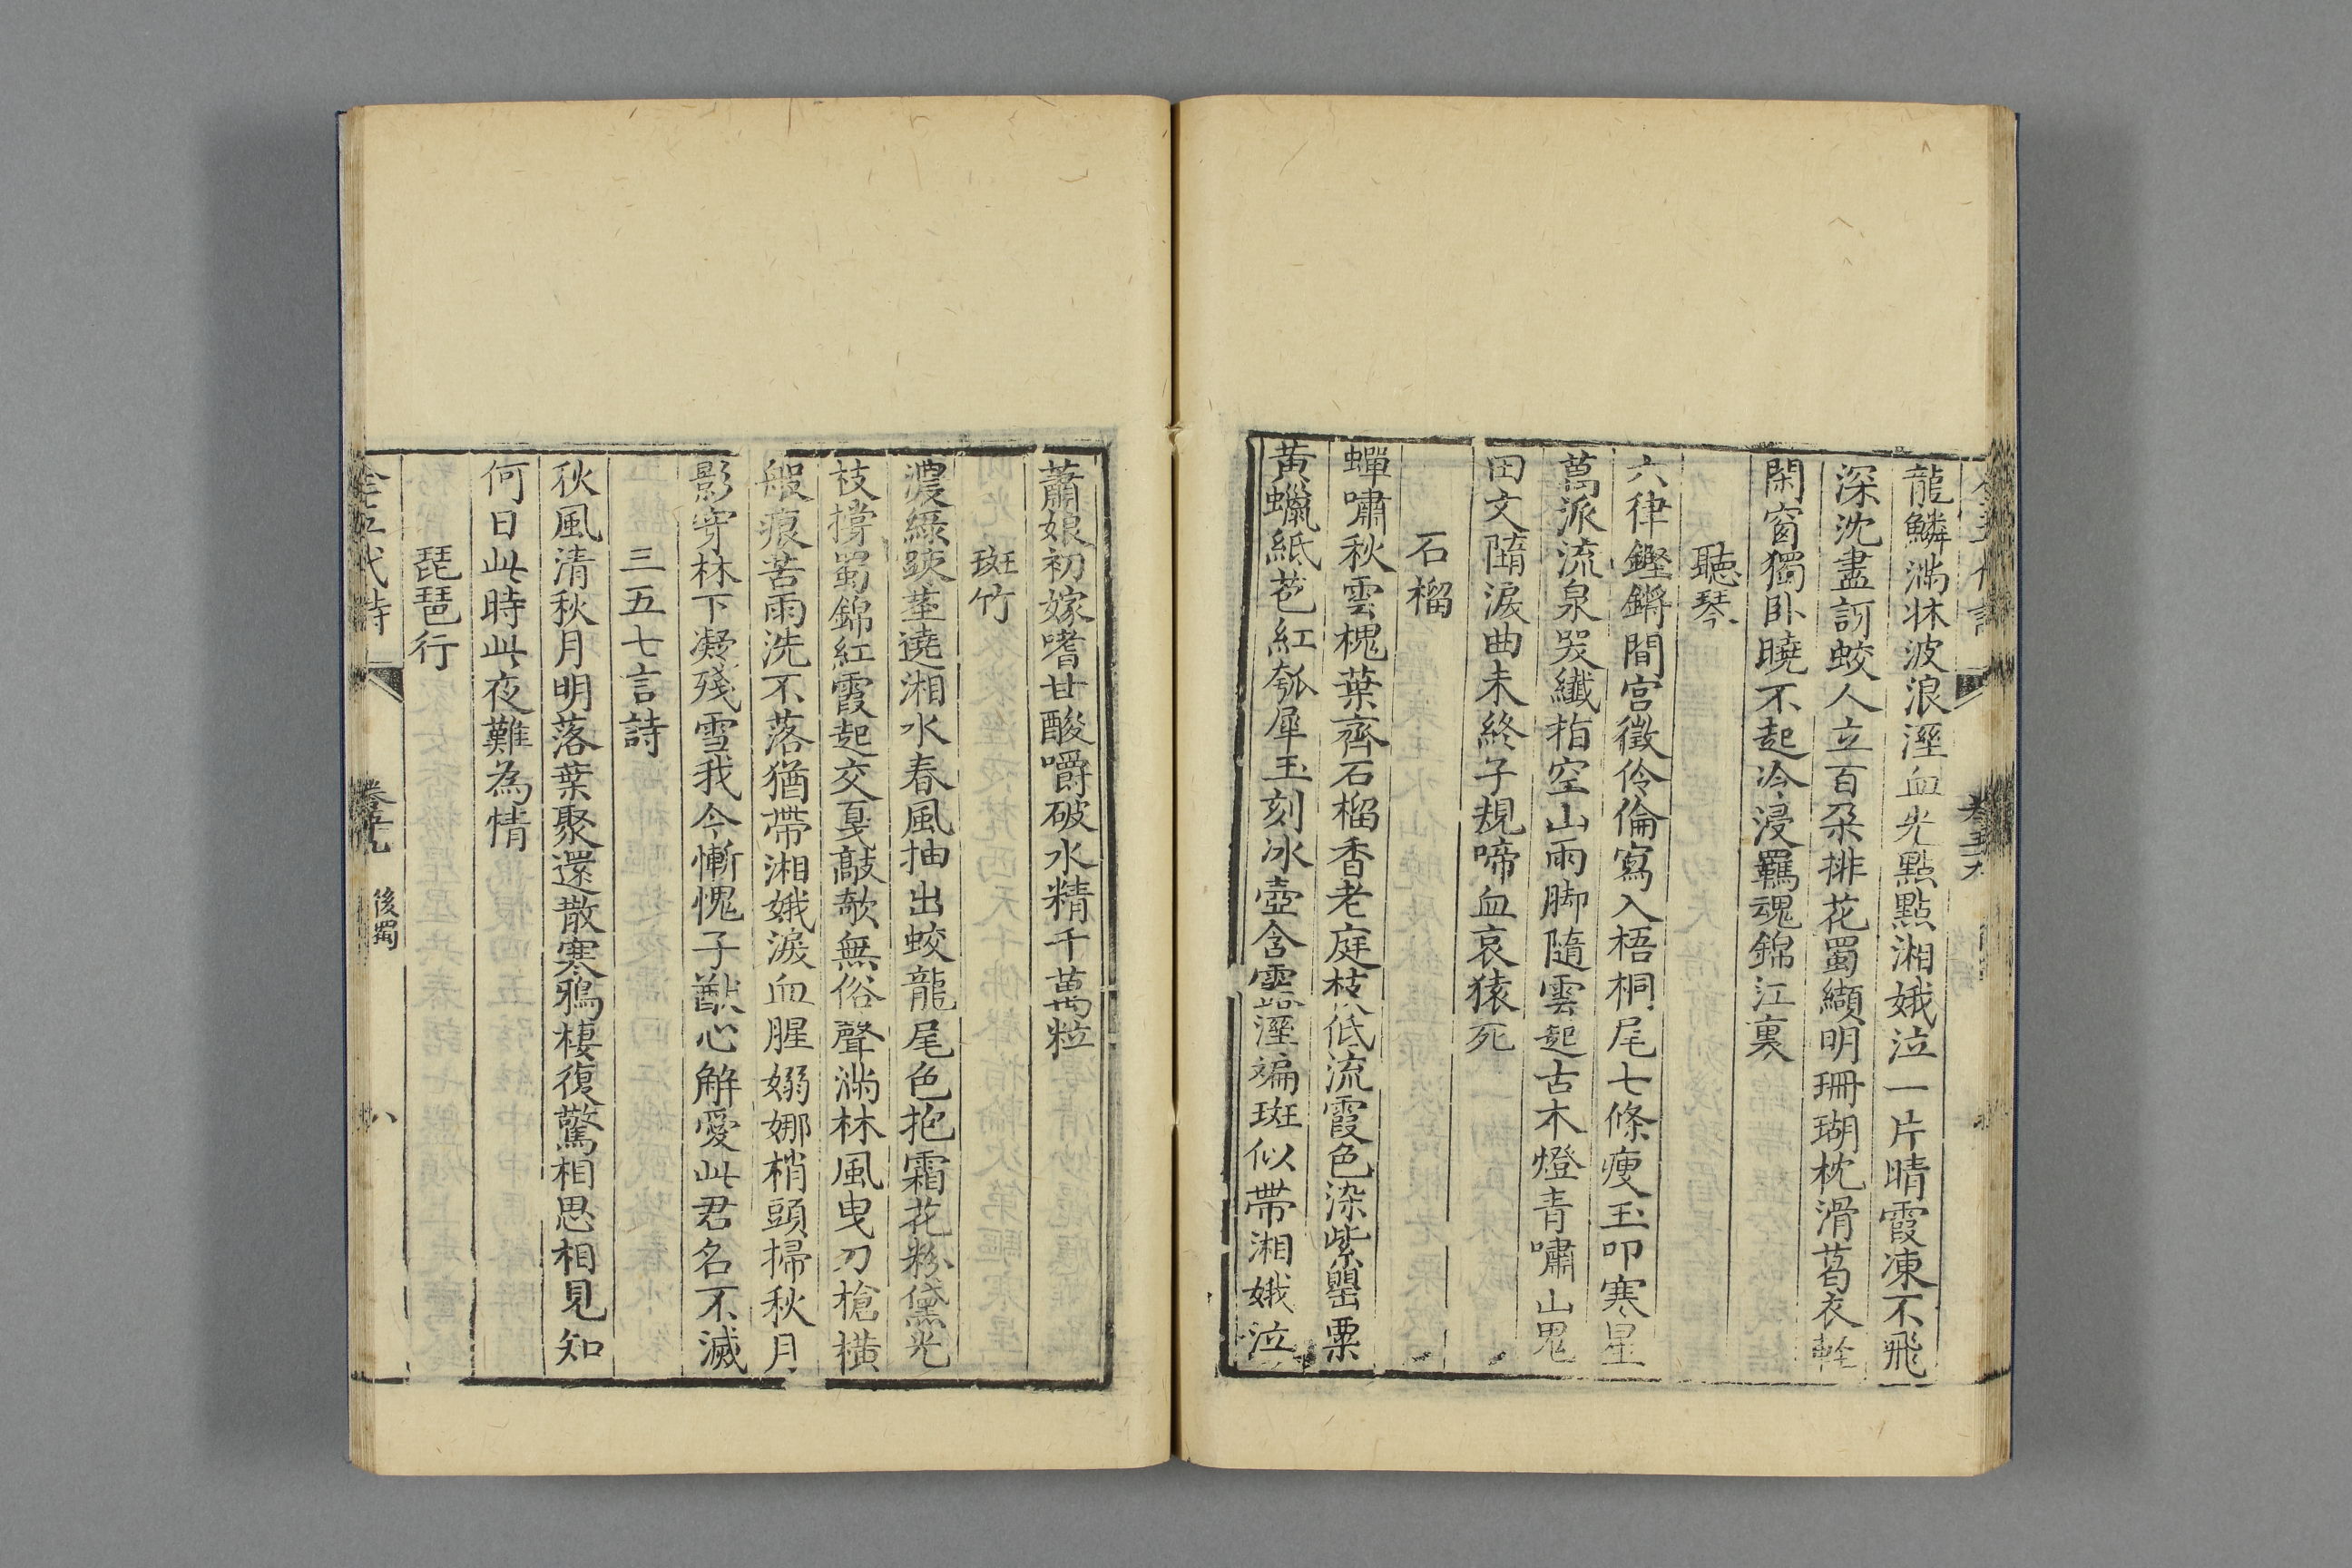 龍鱗滿牀波浪溼血光點點湘娥泣一片晴霞凍不飛
深沈盡訝蛟人立百朶排花蜀纈明珊瑚枕滑葛衣輕
閑窗獨臥曉不起冷浸羈魂錦江裏
聽琴
六律鏗鏘間宮徵伶倫寫入梧桐尾七條瘦玉叩寒星
萬派流泉哭纖指空山雨脚隨雲起古木燈青嘯山鬼
田文隋淚曲未終子規啼血哀猿死
石榴
蟬嘯秋雲槐葉齊石榴香老庭枝低流霞色染紫罌粟
黃蠟紙苞紅瓠犀玉刻冰壺含露溼斒斑似帶湘娥泣
蕭娘初嫁嗜甘酸嚼破水精千萬粒
斑竹
濃綠踈莖遶湘水春風抽出蛟龍尾色抱霜花粉黛光
枝撐蜀錦紅霞起交戛敲欹無俗聲滿林風曳刀槍橫
殷痕苦雨洗不落猶帶湘娥淚血腥嫋娜梢頭掃秋月
影穿林下凝殘雪我今慚愧子猷心解愛此君名不滅
三五七言詩
秋風清秋月明落葉聚還散寒鴉棲復驚相思相見知
何日此時此夜難為情
琵琶行
全五代詩
卷五十九
後蜀
八